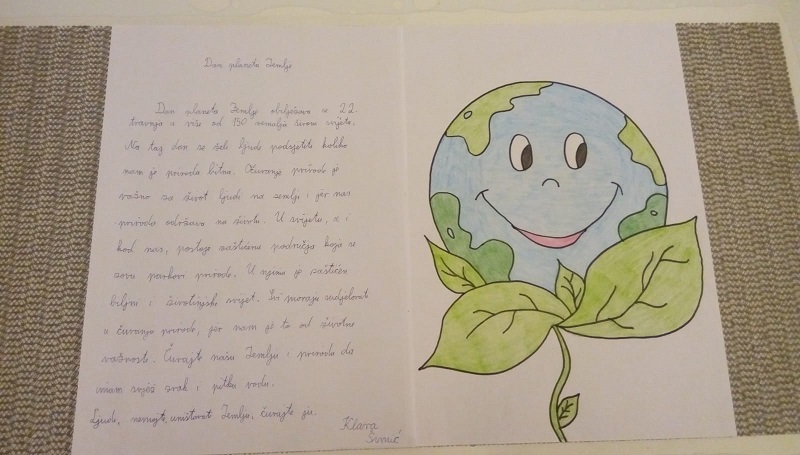 Dan planeta Zemlje
Dan planeta Zemlje obilježava se 22.
travnja u više od 150 zemalja širom svijeta.
Na taj dan se želi ljude podsjetiti koliko
nam je priroda bitna. Očuvanje prirode je
važno za život ljudi na zemlji i jer nas
priroda održava na životu. U svijetu, a i
kod nas, postoje zaštićena područja koja se
zovu parkovi prirode. U njima je zaštićen
biljni i životinjski svijet. Svi moraju sudjelovati
u čuvanju prirode, jer nam je to od životne
važnosti. Čuvajte našu Zemlju i prirodu da
imam svježi zrak i pitku vodu.
Ljudi, nemojte uništavat Zemlju, čuvajte ju.
Klara
Simić